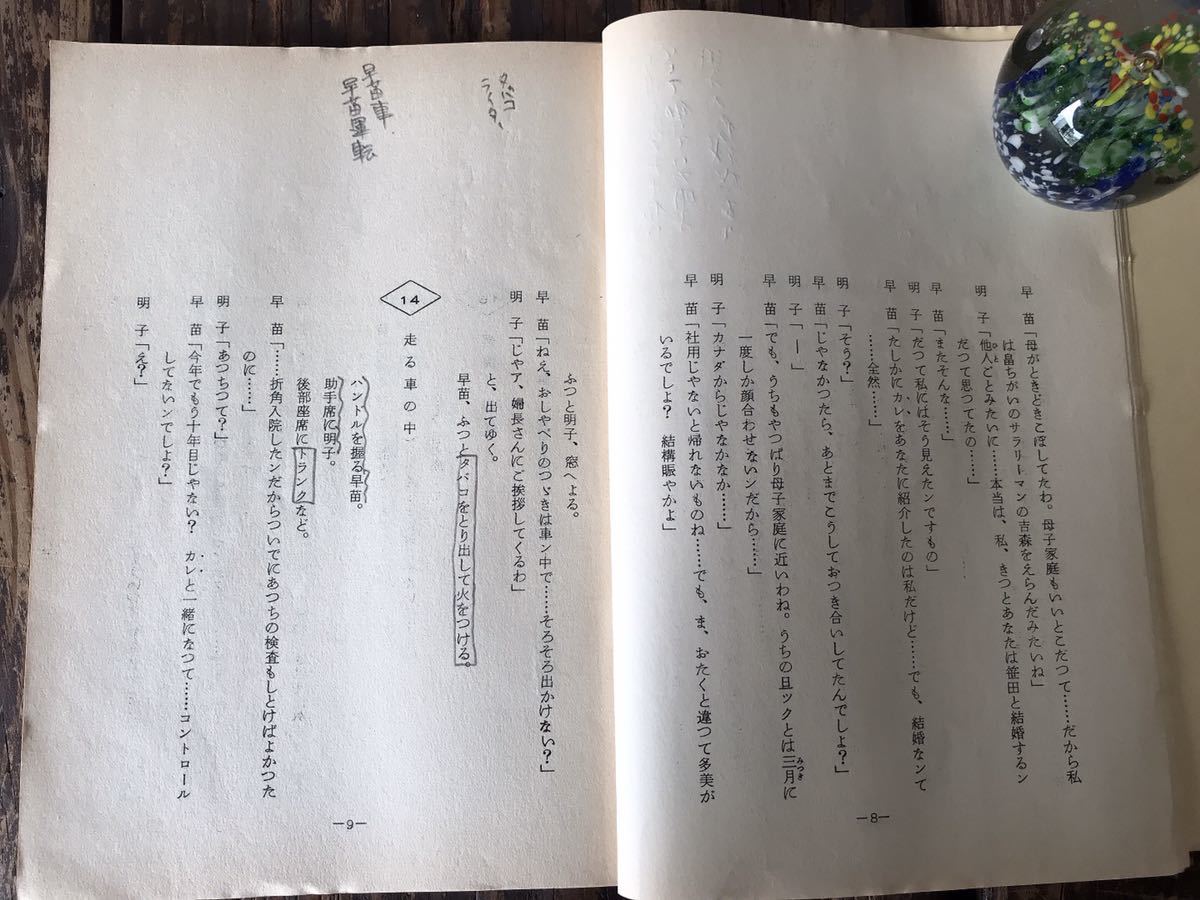 早　苗「母がときどきこぼしてたわ。母子家庭もいいとこだつて……だから私
は畠ちがいのサラリーマンの吉森をえらんだみたいね」
明　子「他人ごとみたいに……本当は、私、きつとあなたは笹田と結婚するン
ひと
だつて思つてたの……」
早　苗「またそんな……」
明　子「だつて私にはそう見えたンですもの」
早　苗「たしかにカレをあなたに紹介したのは私だけど……でも、結婚なンて
……全然……」
明　子「そう？」
早　苗「じゃなかつたら、あとまでこうしておつき合いしてたんでしよ？」
明　子「――」
早　苗「でも、うちもやつぱり母子家庭に近いわね。うちの旦ツクとは三月に
みつき
一度しか顔合わせないンだから……」
明　子「カナダからじゃなかなか……」
早　苗「社用じゃないと帰れないものね……でも、ま、おたくと違つて多美が
いるでしよ？　結構賑やかよ」
—8—
タバコ
ライター
ふつと明子、窓へよる。
早　苗「ねえ、おしやべりのつゞきは車ン中で……そろそろ出かけない？」
明　子「じゃア、婦長さんにご挨拶してくるわ」
と、出てゆく。
早苗、ふつとタバコをとり出して火をつける。
早苗車
早苗運転
14　走る車の中
ハントルを握る早苗。
助手席に明子。
後部座席にトランクなど。
早　苗「……折角入院したンだからついでにあつちの検査もしとけばよかつた
のに……」
明　子「あつちつて？」
早　苗「今年でもう十年目じゃない？　カレと一緒になつて……コントロール
してないンでしよ？」
明　子「え？」
—9—